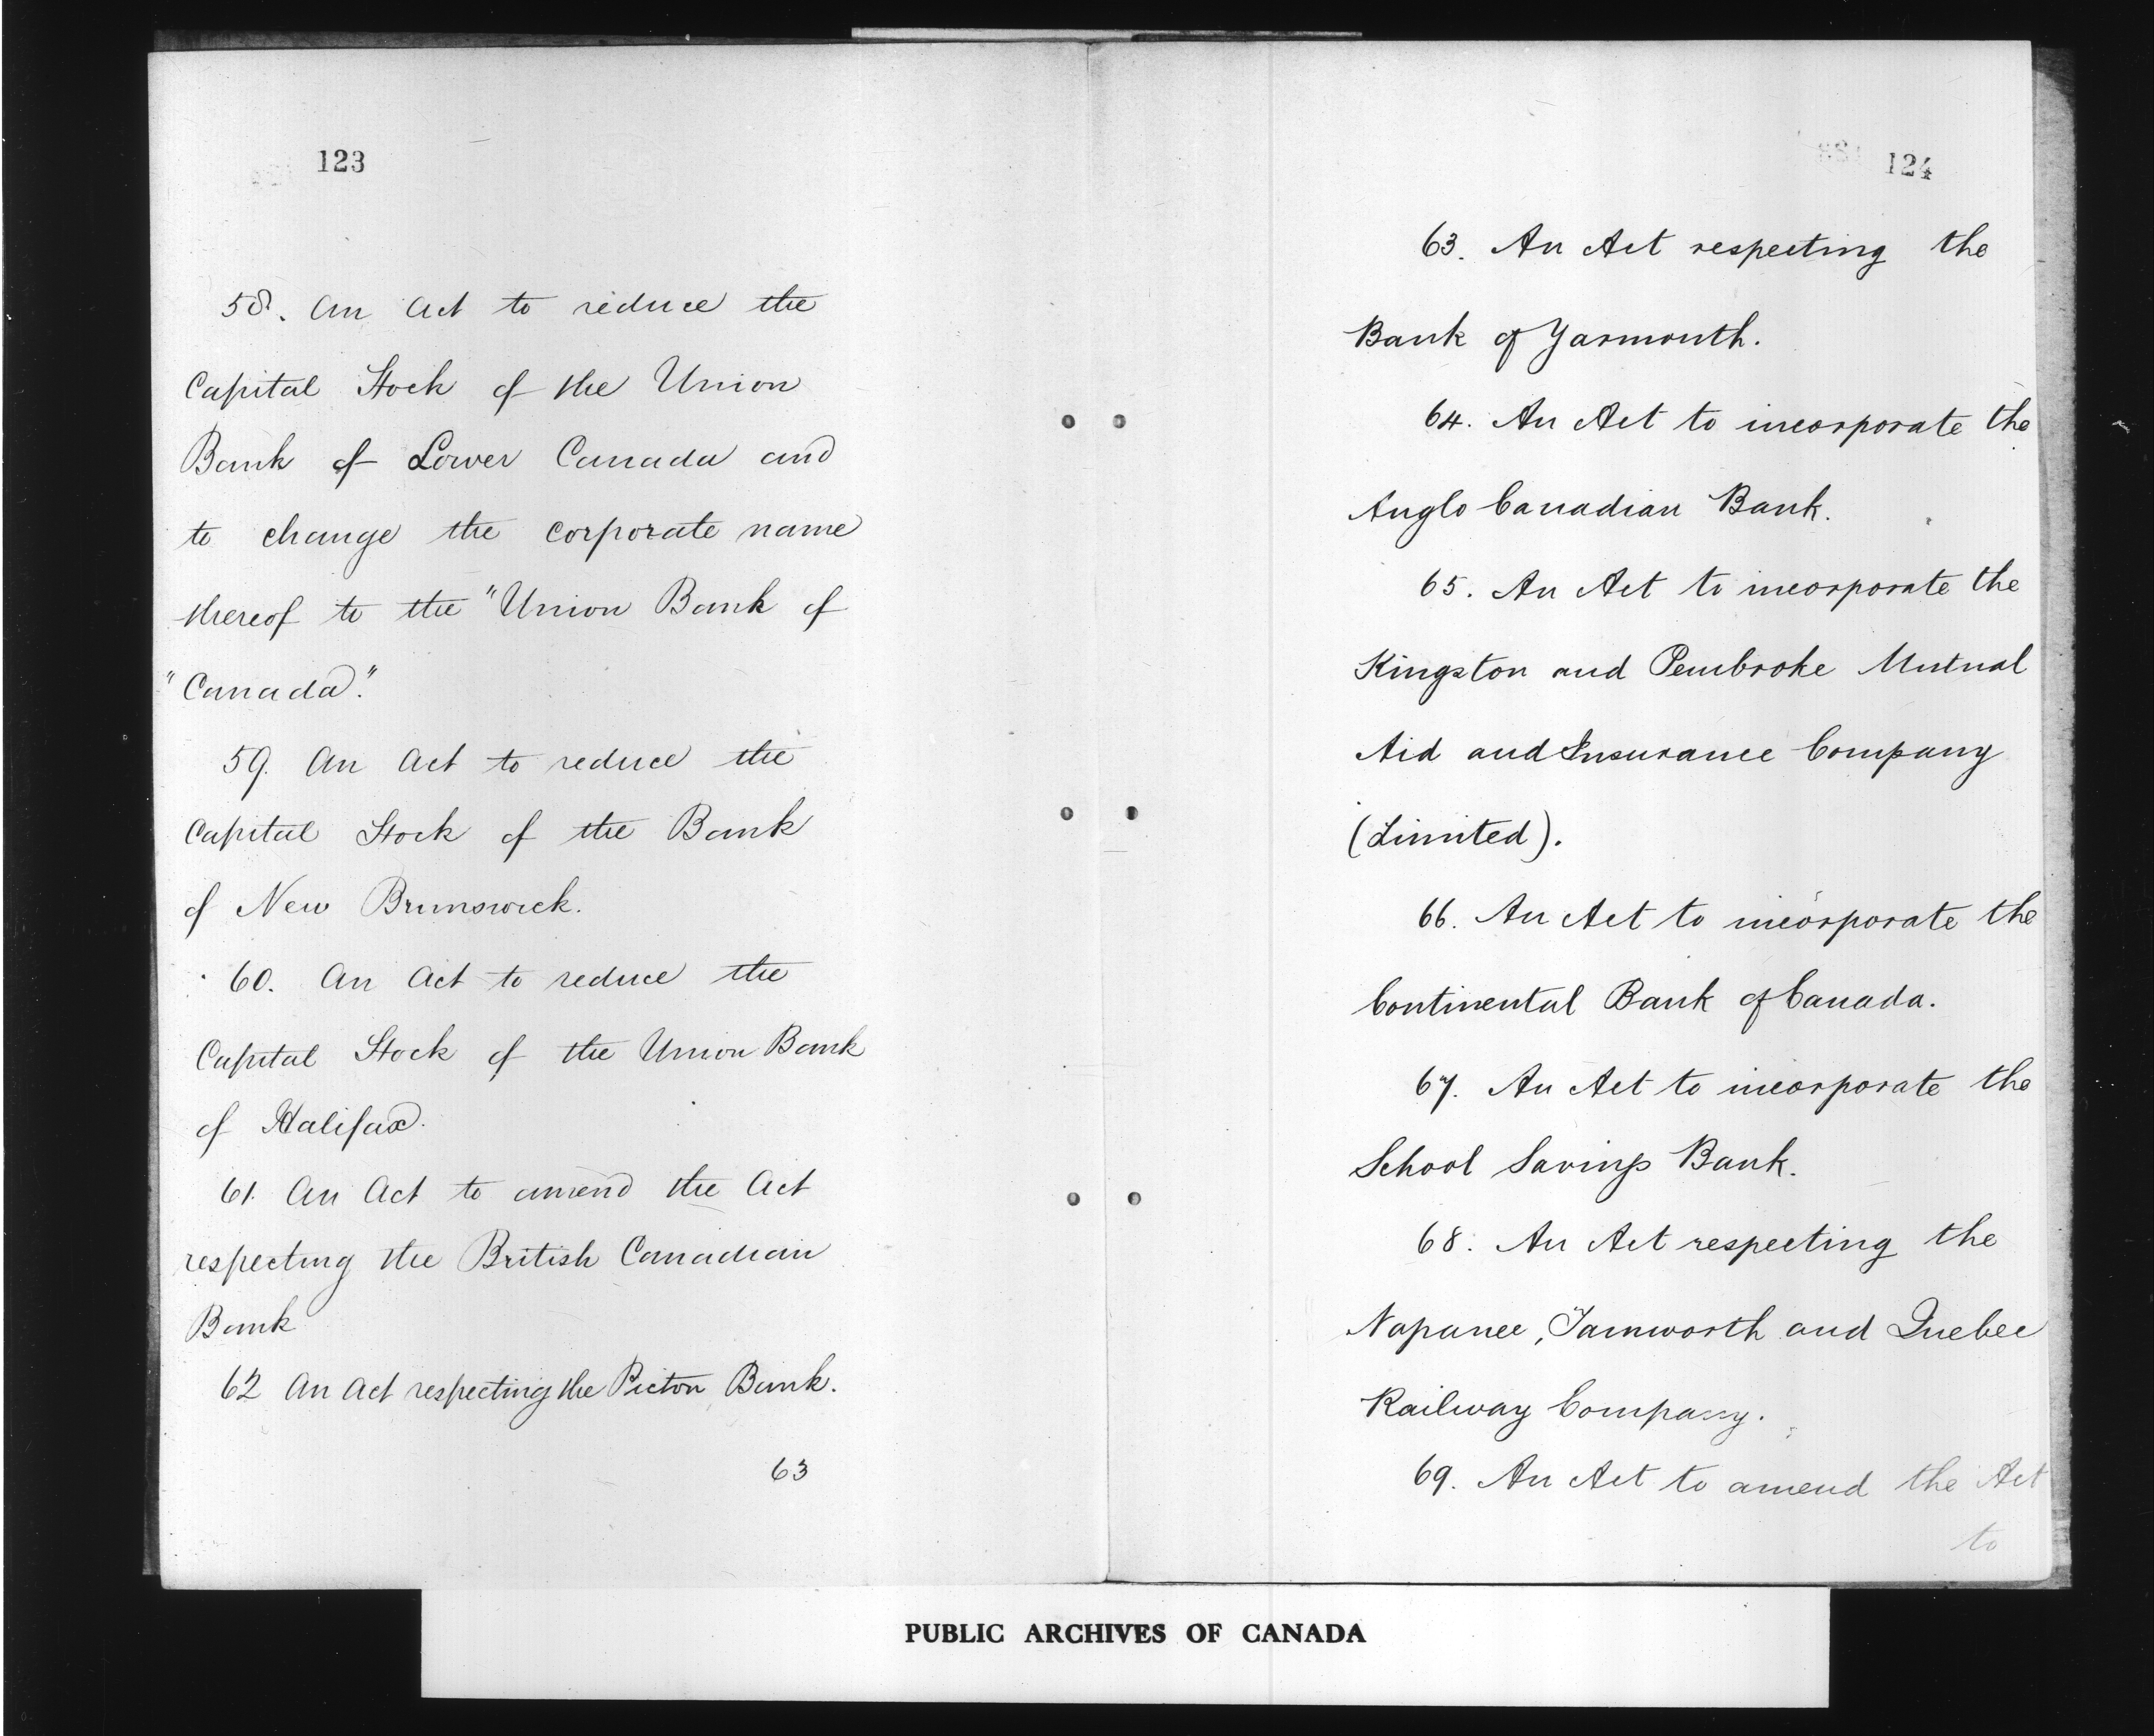 123
58. An Act to reduce the
Capital Stock of the Union
Bank of Lower Canada and
to change the corporate name
thereof to the "Union Bank of
"Canada."
59. An Act to reduce the
Capital Stock of the Bank
of New Brunswick.
60. An Act to reduce the
Capital Stock of the Union Bank
of Halifax.
61. An Act to amend the Act
respecting the British Canadian
Bank
62 An Act respecting the Pictou Bank.
63
124
63. An Act respecting the
Bank of Yarmouth.
64. An Act to incorporate the
Anglo Canadian Bank.
65. An Act to incorporate the
Kingston and Pembroke Mutual
Aid and Insurance Company
(Limited).
66. An Act to incorporate the
Continental Bank of Canada.
67. An Act to incorporate the
School Savings Bank.
68. An Act respecting the
Napanee, Tamworth and Quebec
Railway Company.
69. An Act to amend the Act
to
PUBLIC ARCHIVES OF CANADA